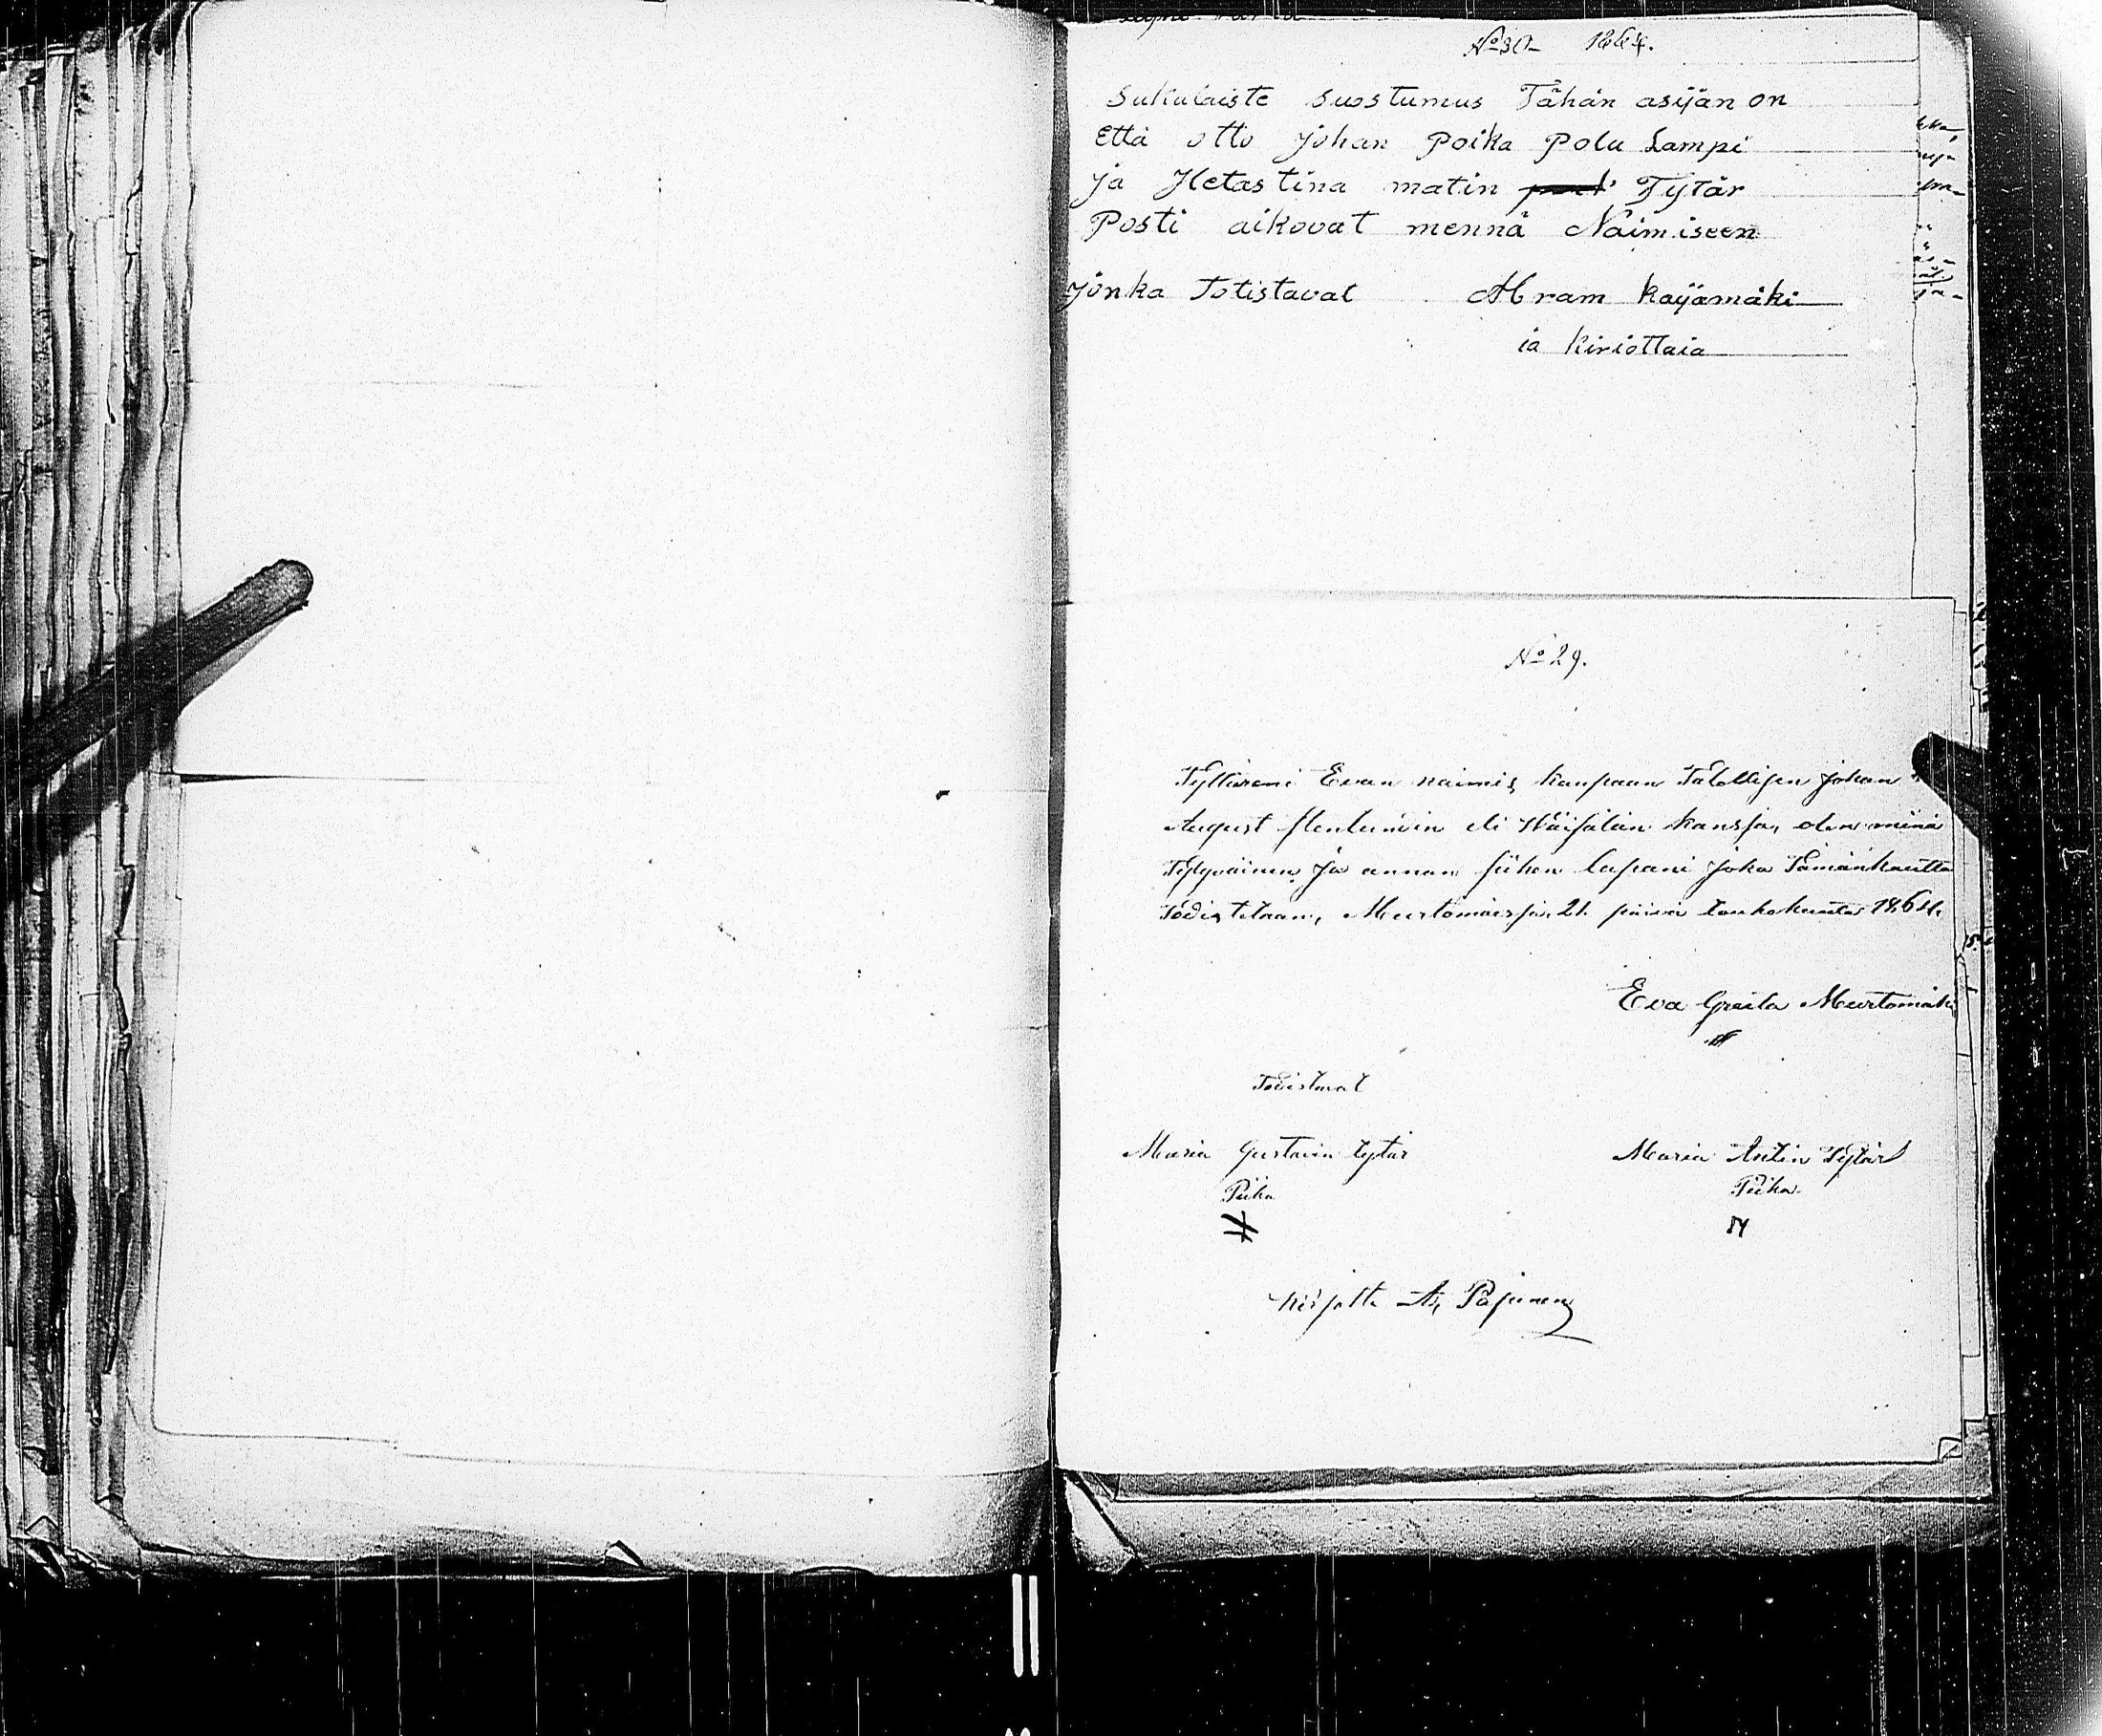 No 30 1864.
Sukulaiste suostumus Tähän asijän on
Että otto Johan Poika Polu Lampi
ja Hetastina matin Tytär
Posti aikovat mennä Naimiseen
jonka Totistavat Abram kayämäki
ia kiriottaia
No 29.
Tyttäreni Evan naimis kaupaan Talollisen Johan
August eli Wäisälän kanssa, olen minä
Tytyväinen, ja annan siihen lupani joka Tämänkautta
Todistetaan, Murtomäessä, 21 päivä toukokuuta 1864.
Eva Greita Murtomäki
Todistavat
Maria Gustavin tytär
Maria Antin Tytär
Piika
Piika
kirjotti A, Pajunen